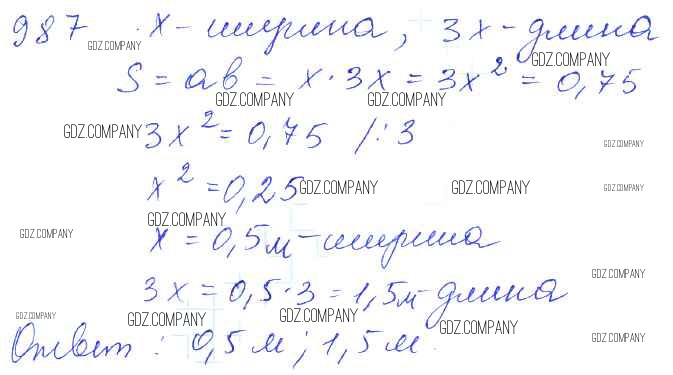 987 x - ширина, 3x - длина
GDZ.COMPANY GDZ.COMPANY
S = ab = x · 3x = 3x² = 0,75
GDZ.COMPANY GDZ.COMPANY
GDZ.COMPANY 3x² = 0,75 /:3 GDZ.COMPANY
x² = 0,25 GDZ.COMPANY GDZ.COMPANY GDZ.COMPANY
GDZ.COMPANY
GDZ.COMPANY x = 0,5м - ширина
GDZ.COMPANY
3x = 0,5·3 = 1,5м - длина
GDZ.COMPANY GDZ.COMPANY GDZ.COMPANY GDZ.COMPANY
Ответ: 0,5 м; 1,5 м. GDZ.COMPANY